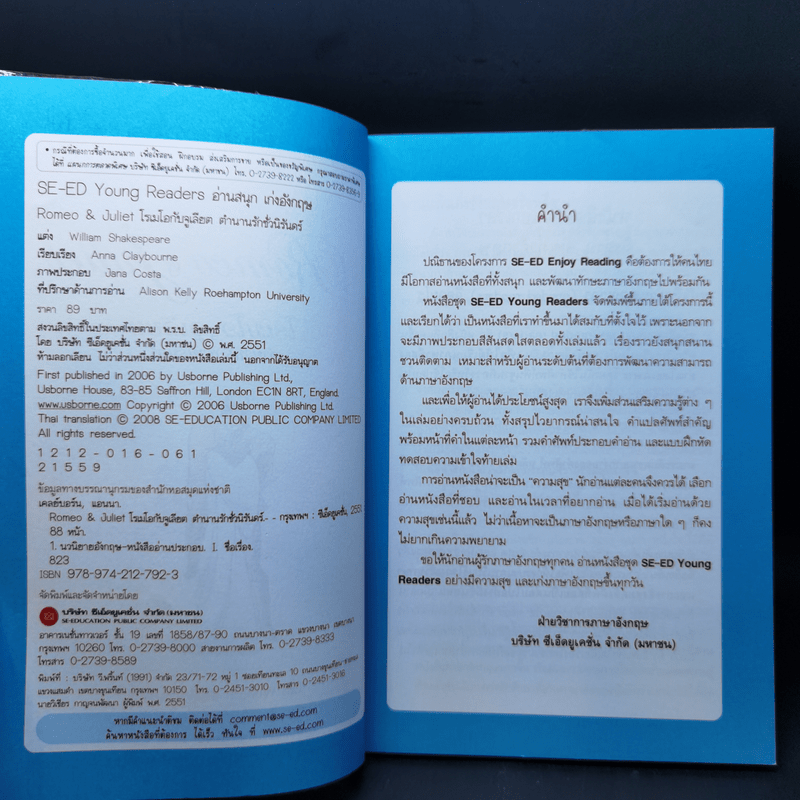 • กรณีที่ต้องการซื้อจำนวนมาก เพื่อใช้สอน ฝึกอบรม ส่งเสริมการขาย หรือเป็นของขวัญพิเศษ กรุณาสอบถามราคาพิเศษ
ได้ที่ แผนกการตลาดพิเศษ บริษัท ซีเอ็ดยูเคชั่น จำกัด (มหาชน) โทร. 0-2739-8222 หรือ โทรสาร 0-2739-8356-9
SE-ED Young Readers อ่านสนุก เก่งอังกฤษ
Romeo & Juliet โรเมโอกับจูเลียต ตำนานรักชั่วนิรันดร์
แต่ง William Shakespeare
เรียบเรียง Anna Claybourne
ภาพประกอบ Jana Costa
ที่ปรึกษาด้านการอ่าน Alison Kelly Roehampton University
ราคา 89 บาท
สงวนลิขสิทธิ์ในประเทศไทยตาม พ.ร.บ. ลิขสิทธิ์
โดย บริษัท ซีเอ็ดยูเคชั่น จำกัด (มหาชน) © พ.ศ. 2551
ห้ามลอกเลียน ไม่ว่าส่วนหนึ่งส่วนใดของหนังสือเล่มนี้ นอกจากได้รับอนุญาต
First published in 2006 by Usborne Publishing Ltd.,
Usborne House, 83-85 Saffron Hill, London EC1N 8RT, England.
www.usborne.com Copyright © 2006 Usborne Publishing Ltd.
Thai translation © 2008 SE-EDUCATION PUBLIC COMPANY LIMITED
All rights reserved.
1 2 1 2 - 0 1 6 - 0 6 1
2 1 5 5 9
ข้อมูลทางบรรณานุกรมของสำนักหอสมุดแห่งชาติ
เคลย์บอร์น, แอนนา.
Romeo & Juliet โรเมโอกับจูเลียต ตำนานรักชั่วนิรันดร์.- - กรุงเทพฯ : ซีเอ็ดยูเคชั่น, 2551
88 หน้า.
1. นวนิยายอังกฤษ-หนังสืออ่านประกอบ. I. ชื่อเรื่อง.
823
ISBN 978-974-212-792-3
จัดพิมพ์และจัดจำหน่ายโดย
บริษัท ซีเอ็ดยูเคชั่น จำกัด (มหาชน)
SE-EDUCATION PUBLIC COMPANY LIMITED
อาคารเนชั่นทาวเวอร์ ชั้น 19 เลขที่ 1858/87-90 ถนนบางนา-ตราด แขวงบางนา เขตบางนา
กรุงเทพฯ 10260 โทร. 0-2739-8000 สายงานการผลิต โทร. 0-2739-8333
โทรสาร 0-2739-8589
พิมพ์ที่ : บริษัท วี.พริ้นท์ (1991) จำกัด 23/71-72 หมู่ 1 ซอยเทียนทะเล 10 ถนนบางขุนเทียน-ชายทะเล
แขวงแสมดำ เขตบางขุนเทียน กรุงเทพฯ 10150 โทร. 0-2451-3010 โทรสาร 0-2451-3016
นายวิเชียร กาญจนพัฒนา ผู้พิมพ์ พ.ศ. 2551
หากมีคำแนะนำติชม ติดต่อได้ที่ comment@se-ed.com
ค้นหาหนังสือที่ต้องการ ได้เร็ว ทันใจ ที่ www.se-ed.com
คำนำ
ปณิธานของโครงการ SE-ED Enjoy Reading คือต้องการให้คนไทย
มีโอกาสอ่านหนังสือที่ทั้งสนุก และพัฒนาทักษะภาษาอังกฤษไปพร้อมกัน
หนังสือชุด SE-ED Young Readers จัดพิมพ์ขึ้นภายใต้โครงการนี้
และเรียกได้ว่า เป็นหนังสือที่เราทำขึ้นมาได้สมกับที่ตั้งใจไว้ เพราะนอกจาก
จะมีภาพประกอบสีสันสดใสตลอดทั้งเล่มแล้ว เรื่องราวยังสนุกสนาน
ชวนติดตาม เหมาะสำหรับผู้อ่านระดับต้นที่ต้องการพัฒนาความสามารถ
ด้านภาษาอังกฤษ
และเพื่อให้ผู้อ่านได้ประโยชน์สูงสุด เราจึงเพิ่มส่วนเสริมความรู้ต่าง ๆ
ในเล่มอย่างครบถ้วน ทั้งสรุปไวยากรณ์น่าสนใจ คำแปลศัพท์สำคัญ
พร้อมหน้าที่คำในแต่ละหน้า รวมคำศัพท์ประกอบคำอ่าน และแบบฝึกหัด
ทดสอบความเข้าใจท้ายเล่ม
การอ่านหนังสือน่าจะเป็น "ความสุข" นักอ่านแต่ละคนจึงควรได้ เลือก
อ่านหนังสือที่ชอบ และอ่านในเวลาที่อยากอ่าน เมื่อได้เริ่มอ่านด้วย
ความสุขเช่นนี้แล้ว ไม่ว่าเนื้อหาจะเป็นภาษาอังกฤษหรือภาษาใด ๆ ก็คง
ไม่ยากเกินความพยายาม
ขอให้นักอ่านผู้รักภาษาอังกฤษทุกคน อ่านหนังสือชุด SE-ED Young
Readers อย่างมีความสุข และเก่งภาษาอังกฤษขึ้นทุกวัน
ฝ่ายวิชาการภาษาอังกฤษ
บริษัท ซีเอ็ดยูเคชั่น จำกัด (มหาชน)